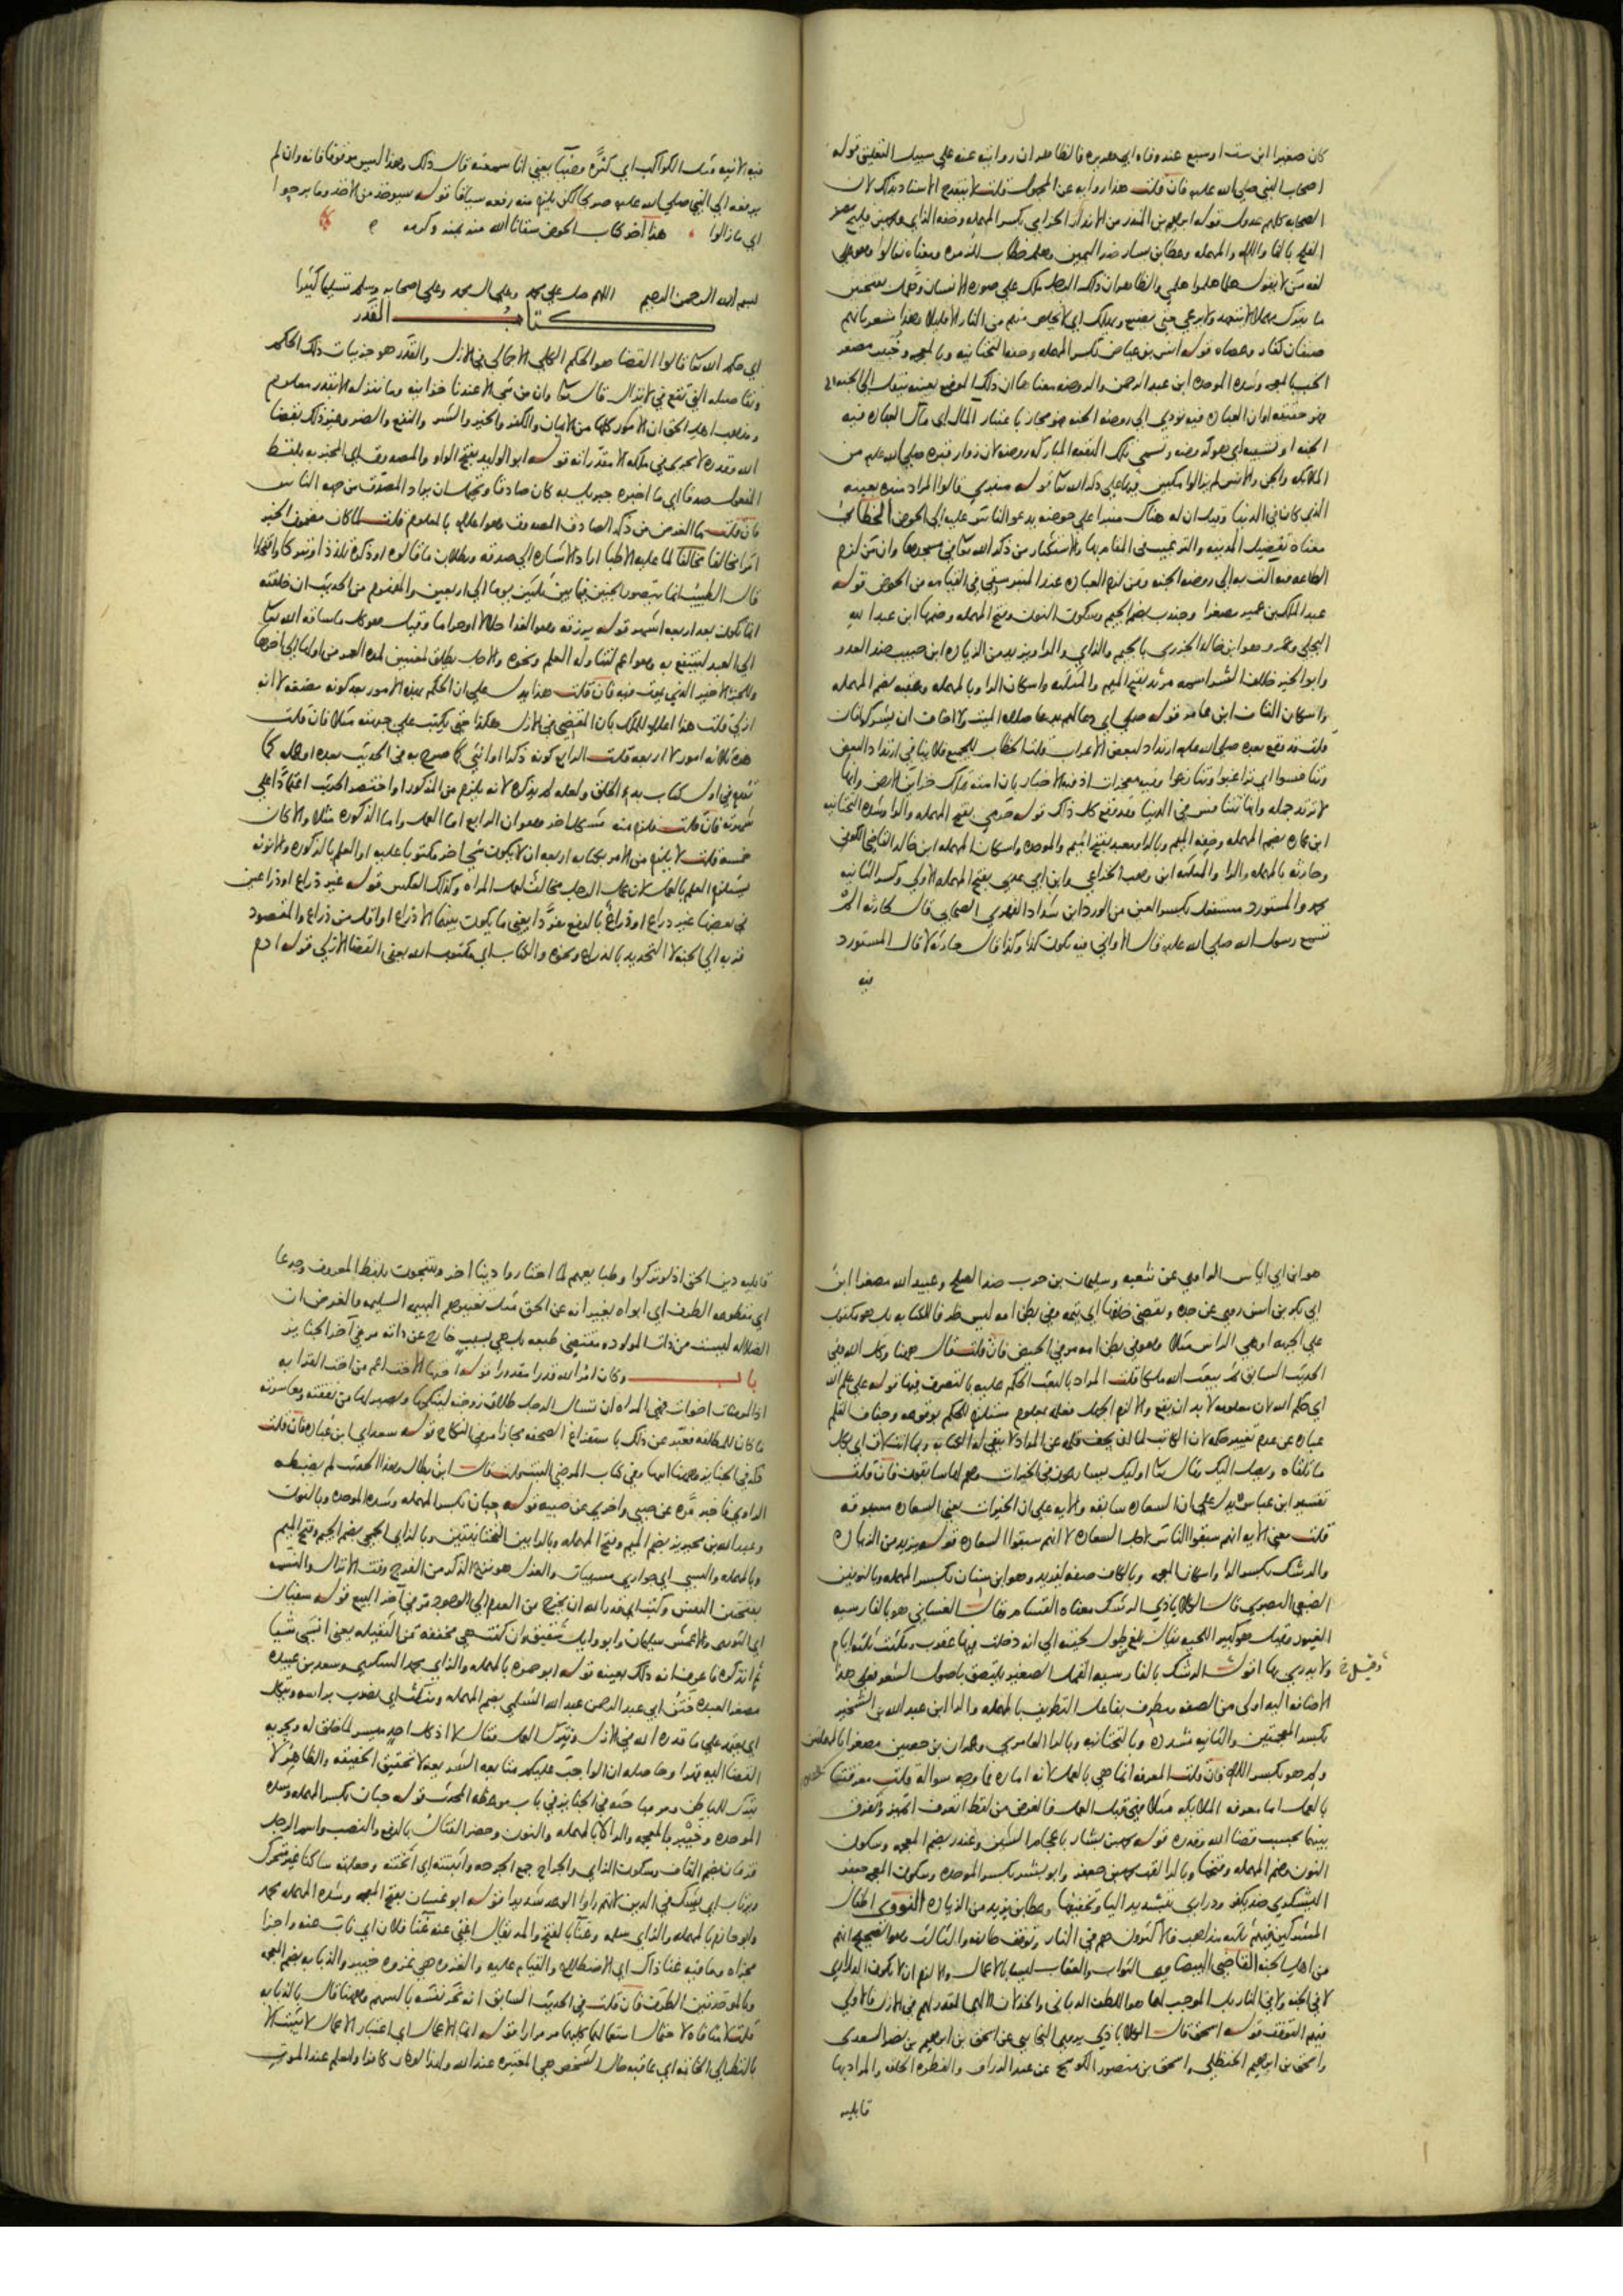 كان صغيرا ابن ست او سبع عند وفاه ابي هريره فالظاهر ان روايته عنه علي سبيل التعليق قوله
اصحاب النبي صلي الله عليه فان قلت هذا روايه عن المجهول قلت لا يقدح الاسناد بذلك لان
الصحابه كلهم عدول قوله ابراهيم بن المنذر من الانذار الحزامي بكسر المهمله وخفه الزاي ومحمد بن فليح مصغر
الفلح بالفا واللام والمهمله وعطا بن يسار ضد اليمين وهلم خطاب للزمره ومعناه تعالوا وهو علي
لغه من لا يقول هلما هلموا هلمي والظاهر ان ذلك الرجل ملك علي صوره الانسان وهمل بفتحتين
ما يترك مهملا لا يتعهد ولا يرعي حتي يضيع ويهلك اي لا يخلص منهم من النار الا قليلا وهذا مشعر بانهم
صنفان كفار وعصاه قوله انس بن عياض بكسر المهمله وخفه التحتانيه وبالمعجمه وخبيب مصغر
الخب بالمعجمه وشده الموحده ابن عبد الرحمن والروضه معناها ان ذلك الموضع بعينه ينقل الي الجنه
فهو حقيقه او ان العباده فيه تؤدي الي روضه الجنه فهو مجاز باعتبار المال اي مآل العباده فيه
الجنه او تشبيه اي هو كروضه وتسمي تلك البقعه المباركه روضه لان زوار قبره صلي الله عليه من
الملائكه والجن والانس لم يزالوا مكبين فيها علي ذكر الله تعا قوله منبري قالوا المراد منبره بعينه
الذي كان في الدنيا وقيل ان له هناك منبرا علي حوضه يدعو الناس عليه الي الحوض الخطابي
معناه تفضيل المدينه والترغيب في المقام بها والاستكثار من ذكر الله تعا في مسجدها وان من لزم
الطاعه فيه آلت به الي روضه الجنه ومن لزم العباده عند المنبر سقي في القيامه من الحوض قوله
عبد الملك بن عمير مصغرا وجندب بضم الجيم وسكون النون وفتح المهمله وضمها ابن عبد الله
البجلي وعمرو هو ابن خالد الجزري بالجيم والزاي والرا ويزيد من الزياده ابن حبيب ضد العدو
وابو الخير خلاف الشر اسمه مرثد بفتح الميم والمثلثه واسكان الرا وبالمهمله وعقبه بضم المهمله
واسكان القاف ابن عامر قوله صلي اي دعا لهم بدعا صلاه الميت ولا اخاف ان يشركوا فان
قلت قد وقع بعده صلي الله عليه ارتداد لبعض الاعراب قلت الخطاب للجميع فلا ينافي ارتداد البعض
وتنافسوا اي تراغبوا وتنازعوا وفيه معجزات اذ فيه الاخبار بان امته تملك خزاين الارض وانها
لا ترتد جمله وانها تتنافس في الدنيا وقد وقع كل ذلك قوله حرمي بفتح المهمله والرا وشده التحتانيه
ابن عماره بضم المهمله وخفه الميم وبالرا ومعبد بفتح الميم والموحده واسكان المهمله ابن خالد القاضي الكوفي
وحارثه بالمهمله والرا والمثلثه ابن وهب الخزاعي وابن ابي عدي بفتح المهمله الاولي وكسر الثانيه
محمد والمستورد مستفعل بكسر العين من الورد ابن شداد الفهري الصحابي قال لحارثه الم
تسمع رسول الله صلي الله عليه قال الاواني فيه تكون كذا وكذا قال حارثه لا قال المستورد
فيه
فيه الانيه مثل الكواكب اي كثره وضيا يعني انا سمعته قال ذلك وهذا ليس موقوفا فانه وان لم
يرفعه الي النبي صلي الله عليه صريحا لكن يلزم منه رفعه سياقا قوله سيوخذ من الاخذ وما برحوا
اي ما زالوا هذا آخر كتاب الحوض سقانا الله منه بمنه وكرمه
بسم الله الرحمن الرحيم اللهم صل علي محمد وعلي ال محمد وعلي اصحابه وسلم تسليما كثيرا
كتاب القدر
اي حكم الله تعا قالوا القضا هو الحكم الكلي الاجمالي في الازل والقدر هو جزييات ذلك الحكم
وتفاصيله التي تقع في لا يزال قال تعا وان من شي الا عندنا خزاينه وما ننزله الا بقدر معلوم
ومذهب اهل الحق ان الامور كلها من الايمان والكفر والخير والشر والنفع والضر وغير ذلك بقضا
الله وقدره لا يجري في ملكه الا مقدراته قوله ابو الوليد بفتح الواو والمصدوق اي المخبر به بلفظ
المفعول صدقا اي ما اخبره جبريل به كان صادقا ويحتمل ان يراد المصدق من جهه الناس
فان قلت ما الغرض من ذكر الصادق المصدوق وهو اعلام بالمعلوم قلت لما كان مضمون الخبر
امرا مخالفا لما عليه الاطبا اراد الاشاره الي صدقه وبطلان ما قالوه او ذكره تلذذا وتبركا وافتخارا
قال الطبيب انما يتصور الجنين فيما بين ثلثين يوما الي اربعين والمفهوم من الحديث ان خلقته
انما تكون بعد اربعه اشهر قوله برزقه وهو الغذا حلالا او حراما وقيل هو كل ما ساقه الله تعا
الي العبد لينتفع به وهو اعم لتناوله العلم ونحوه والاجل يطلق لمعنيين لمده العمر من اولها الي اخرها
وللجزء الاخير الذي يموت فيه فان قلت هذا يدل علي ان الحكم بهذه الامور بعد كونه مضغه لا انه
ازلي قلت هذا اعلام للملك بان المقضي في الازل هكذا حتي يكتب علي جبهته مثلا فان قلت
هذه ثلاثه امور لا اربعه قلت الرابع كونه ذكرا او انثي كما صرح به في الحديث بعده او عمله كما
تقدم في اول كتاب بدء الخلق ولعله لم يذكره لانه يلزم من المذكور او اختصر الحديث اعتمادا علي
شهرته فان قلت فلزم منه مشكل اخر وهو ان الرابع اما العمل واما الذكوره مثلا والا كان
خمسه قلت لا يلزم من الامر بكتابه اربعه ان لا يكون شي اخر مكتوبا عليه او العلم بالذكوره والانوثه
يستلزم العلم بالعمل لان عمل الرجل مخالف لعمل المراه وكذلك العكس قوله غير ذراع او ذراعين
في بعضها غير ذراع او ذراع بالرفع مفردا يعني ما يكون بينهما الا ذراع او اقل من ذراع والمقصود
قربه الي الجنه لا التحديد بالذراع ونحوه والكتاب اي مكتوب الله يعني القضا الازلي قوله ادم
هو ابن ابي اياس الراوي عن شعبه وسليمان بن حرب ضد الصلح وعبيد الله مصغرا ابن
ابي بكر بن انس روي عن جده ويقضي خلقها اي يتمه وفي بطن امه ليس ظرفا للكتابه بل هو مكتوب
علي الجبهه او هي الراس مثلا وهو في بطن امه مر في الحيض فان قلت قال ههنا وكل الله وفي
الحديث السابق ثم يبعث الله ملكا قلت المراد بالبعث الحكم عليه بالتصرف فيها قوله علي علم الله
اي حكم الله لان معلومه لا بد ان يقع والا لزم الجهل فعلمه بمعلوم مستلزم للحكم بوقوعه وجفاف القلم
عباره عن عدم تغيير حكمه لان الكاتب لما ان يجف قلمه عن المداد لا يبقي له الكتابه وبما انت لاق اي بكل
ما تلقاه ويصل اليك وقال تعا اوليك يسارعون في الخيرات وهم لها سابقون فان قلت
تفسير ابن عباس يدل علي ان السعاده سابقه والايه علي ان الخيرات يعني السعاده مسبوقه
قلت معني الايه انهم سبقوا الناس لاجل السعاده لا انهم سبقوا السعاده قوله يزيد من الزياده
والرشك بكسر الرا واسكان المعجمه وبالكاف صفه ليزيد وهو ابن سنان بكسر المهمله وبالنونين
الضبعي البصري قال الكلاباذي الرشك معناه القسام وقال الغساني هو بالفارسيه
الغيور وقيل هو كبير اللحيه يقال بلغ طول لحيته الي انه دخلت فيها عقرب ومكثت ثلثه ايام
وقيل
ولا يدري بها اقول الرشك بالفارسيه القمل الصغير يلتصق باصول الشعر فعلي هذا
الاضافه اليه اولي من الصفه ومطرف بفاعل التطريف بالمهمله والرا ابن عبد الله بن الشخير
بكسر المعجمتين والثانيه مشدده وبالتحتانيه وبالرا العامري وعمران بن حصين مصغرا بالمهملتين
ولم هو بكسر اللام فان قلت المعرفه انما هي بالعمل لانه اماره فما وجه سواله قلت معرفتنا
بالعمل اما معرفه الملائكه مثلا فهي قبل العمل فالغرض من لفظ اتعرف اتميز وتفرق
بينهما بحسب قضا الله وقدره قوله محمد بن بشار باعجام الشين وغندر بضم المعجمه وسكون
النون وضم المهمله وفتحها وبالرا لقب محمد بن جعفر وابو بشر بكسر الموحده وسكون المعجمه جعفر
اليشكري ضد يكفر وذراري بتشديد اليا وتخفيفها وعطا بن يزيد من الزياده النووي اطفال
المشركين فيهم ثلثه مذاهب فالاكثرون هم في النار وتوقف طايفه والثالث وهو الصحيح انهم
من اهل الجنه القاضي البيضاوي الثواب والعقاب ليسا بالاعمال والا لزم ان لا يكون الذراري
لا في الجنه ولا في النار بل الموجب لهما هو اللطف الرباني والخذلان الالهي المقدر لهم في الازل فالاولي
فيهم التوقف قوله اسحق قال الكلاباذي يروي البخاري عن اسحق بن ابراهيم بن نصر السعدي
واسحق بن ابراهيم الحنظلي واسحق بن منصور الكوسج عن عبد الرزاق والفطره الخلقه والمراد بها
قابليه
قابليه دين الحق اذ لو تركوا وطبايعهم لما اختاروا دينا اخر وتنتجون بلفظ المعروف وجدعا
اي مقطوعه الطرف اي ابواه يغيرانه عن الحق مثل تغييرهم البهيمه السليمه والغرض ان
الضلاله ليست من ذات المولود ومقتضي طبعه بل هي بسبب خارج عن ذاته مر في آخر الجنايز
باب وكان امر الله قدرا مقدورا قوله اختها الاخت اعم من اخت القرابه
اذ المومنات اخوات نهي المراه ان تسال الرجل طلاق زوجته لينكحها ويصير لها من نفقته ومعاشرته
ما كان للمطلقه فعبر عن ذلك باستفراغ الصحفه مجازا مر في النكاح قوله سعد اي ابن عباده فان قلت
ذكر في الجنايز وههنا ابنها وفي كتاب المرضي البنت قلت قال ابن بطال وهذا الحديث لم يضبطه
الراوي فاخبر مره عن صبي واخري عن صبيه قوله حبان بكسر المهمله وشده الموحده وبالنون
وعبد الله بن محيريز بضم الميم وفتح المهمله وبالرا بين التحتانيتين وبالزاي الجمحي بضم الجيم وفتح الميم
وبالمهمله والسبي اي جواري مسبيات والعزل هو نزع الذكر من الفرج وقت الانزال والنسمه
بفتحتين النفس وكتب اي قدر الله ان يخرج من العدم الي الوجود مر في آخر البيع قوله سفيان
اي الثوري والاعمش سليمان وابو وايل شقيق وان كنت هي مخففه من الثقيله يعني انسي شيا
ثم اتذكره فاعرف انه ذلك بعينه قوله ابو حمزه بالمهمله والزاي محمد السكري وسعد بن عبيده
مصغر العبده ختن ابي عبد الرحمن عبد الله السلمي بضم المهمله وينكت اي يضرب براسه ونتكل
اي نعتمد علي ما قدره الله في الازل ونترك العمل فقال لا اذ كل احد ميسر لما خلق له ويجري به
القضا اليه قهرا وحاصله ان الواجب عليكم متابعه الشريعه لا تحقيق الحقيقه والظاهر لا
يترك للباطن ومر مباحثه في الجنايز في باب موعظه المحدث قوله حبان بكسر المهمله وشده
الموحده وخيبر بالمعجمه والرا لا بالمهمله والنون وحضر القتال بالرفع والنصب واسم الرجل
قزمان بضم القاف وسكون الزاي والجراح جمع الجرحه واثبتته اي اثخنته وجعلته ساكنا غير متحرك
ويرتاب اي يشك في الدين لانهم راوا الوعد شديدا قوله ابو غسان بفتح المعجمه وشده المهمله محمد
وابو حازم بالمهمله والزاي سلمه وغناء بالفتح والمد يقال اغني عنه غنا فلان اي ناب عنه واجزا
مجزاه وما فيه غنا ذاك اي الاضطلاع والقيام عليه والغزوه هي غزوه خيبر والذبابه بضم المعجمه
وبالموحدتين الطرف فان قلت في الحديث السابق انه نحر نفسه بالسهم وههنا قال بالذبابه
قلت لا منافاه لاحتمال استعمالهما كليهما مر مرارا قوله انما الاعمال اي اعتبار الاعمال لا يثبت الا
بالنظر الي الخاتمه اي عاقبه حال الشخص هي المعتبره عند الله ولهذا لو كان كافرا واسلم عند الموت